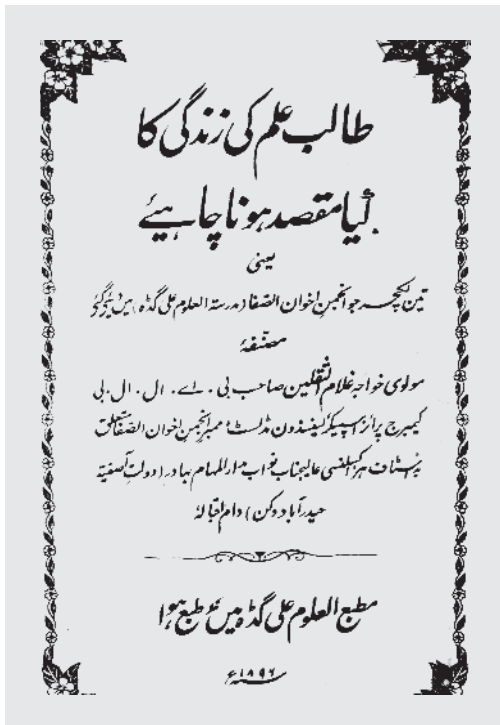 طالب علم کی زندگی کا
کیا مقصد ہونا چاہیے
یعنی
تین لکچر جو انجمن اخوان الصفا مدرستہ العلوم علی گڈہ میں دیے گئے
مصنفۂ
مولوی خواجہ غلام الثقلین صاحب بی . اے . ال . ال . بی
کیمبرج پرائز اسپیکر لینسڈون مڈلسٹ ممبر انجمن اخوان الصفا متعلق
بہ سٹاف ہز اکسلنسی عالیجناب نواب مدارالمہام بہادر (دولت آصفیہ
حیدرآباد دکن) دام اقبالہٗ
مطبع العلوم علی گڈہ میں طبع ہوا
سنہ ۱۸۹۶ء